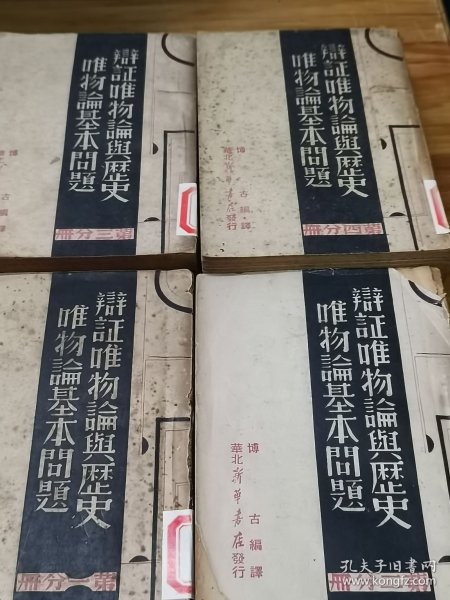 辯証唯物論與歷史
唯物論基本問題
第三分冊
博
辯証唯物論與歷史
唯物論基本問題
第四分冊
博古編·譯
華北新華書店發行
辯証唯物論與歷史
唯物論基本問題
第一分冊
辯証唯物論與歷史
唯物論基本問題
博古編譯
華北新華書店發行
孔夫子旧书网
book.kongfz.com